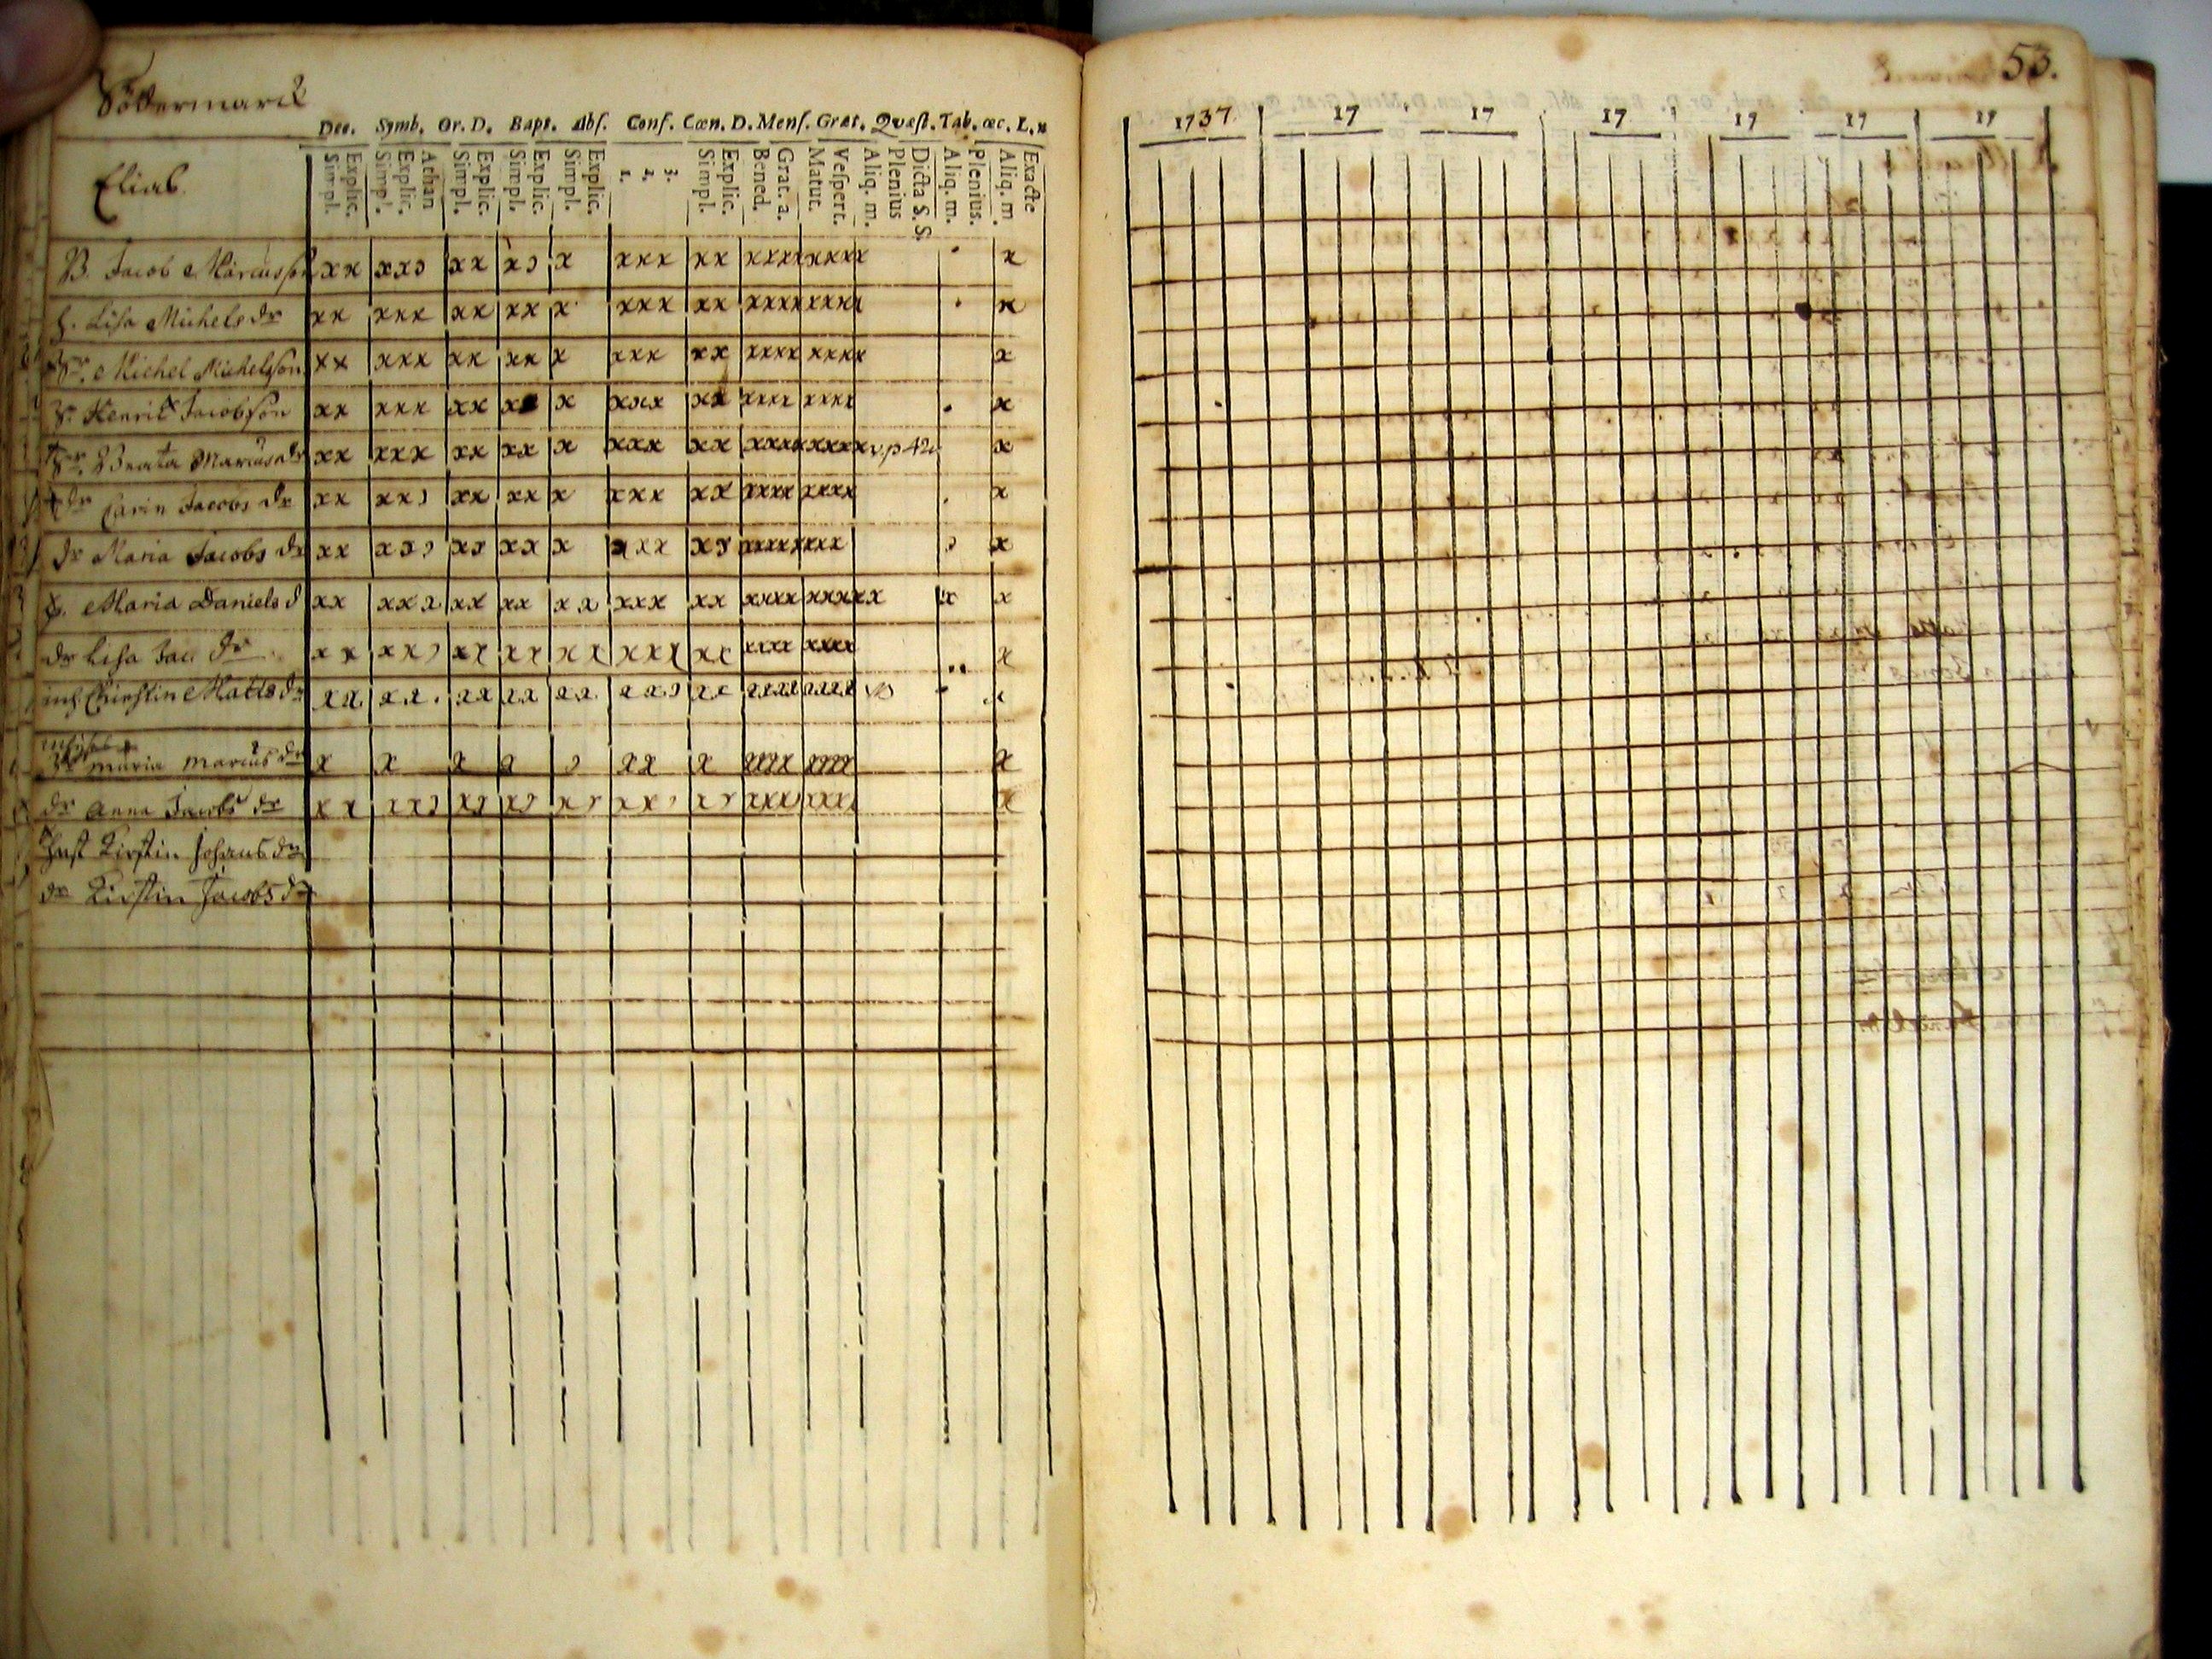 Södermarck
Dec. Symb. Or. D. Bapt. Abſ. Conf. Cœn. D. Menſ. Grat. Quæſt. Tab. œc. L. n
Eliab.
Simpl. Explic. Simpl. Explic. Athan Simpl. Explic. Simpl. Explic. Simpl. Explic. 1. 2. 3. Simpl. Explic. Bened. Grat. a. Matut. Veſpert. Aliq. m. Plenius Dicta S. S. Aliq. m. Plenius. Aliq. m. Exacte
B. Jacob Marcusson xx xxɔ xx xɔ x xxx xx xxxx xxxx x
h. Lisa Michels dr xx xxx xx xx x xxx xx xxxx xxxx x
Michel Michelsson xx xxx xx xx x xxx xx xxxx xxxx x
Henrik Jacobsson xx xxx xx x x xxx xx xxxx xxxx x
Beata Marcus dr xx xxx xx xx x xxx xx xxxx xxxx x
dr Carin Jacobs dr xx xxɔ xx xx x xxx xx xxxx xxxx x
dr Maria Jacobs dr xx xɔɔ xɔ xx x xxx xɔ xxxx xxxx ɔ x
Maria Daniels d xx xxx xx xx xx xxx xx xxxx xxxxx x x
dr Lisa Jac dr xx xxɔ xx xx xx xxx xx xxxx xxxx x
inh Christin Matts dr xx xx. xx xx xx xxɔ xx xxxx xxxx x
Maria Marcus dr x x x x ɔ xx x xxxx xxxx x
dr Anna Jacobs dr xx xxɔ xɔ xɔ xɔ xxɔ xɔ xxxx xxxx x
Kirstin Johans dr
dr Kirstin Jacobs dr
53.
1737. 17 17 17 17 17 17